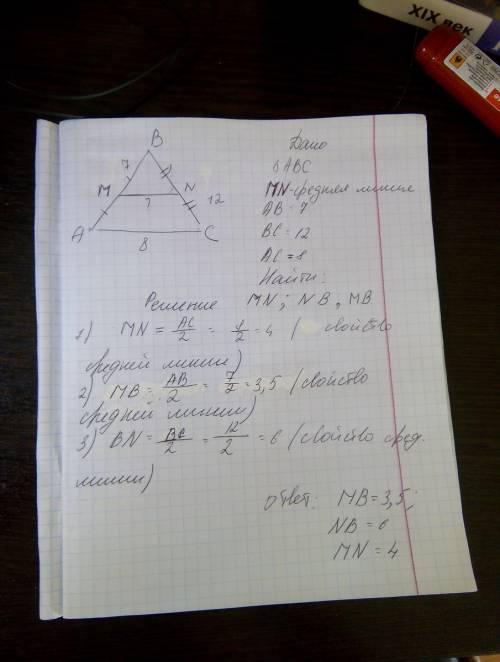 XIX век
B
7
M
N
?
12
A
8
C
Дано
ΔABC
MN-средняя линия
AB=7
BC=12
AC=8
Найти:
Решение MN; NB, MB
1) MN = AC/2 = 8/2 = 4 ( свойство
средней линии)
2) MB = AB/2 = 7/2 = 3,5 (свойство
средней линии)
3) BN = BC/2 = 12/2 = 6 (свойство сред.
линии)
ответ: MB=3,5;
NB=6
MN=4